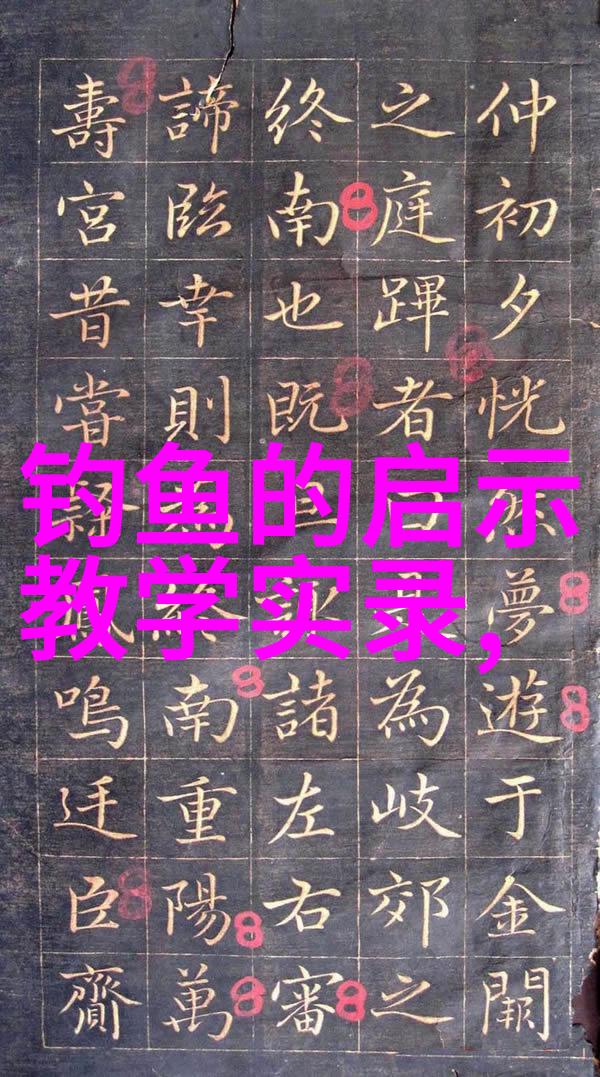 钓鱼的启示
教学实录,
仲初夕恍夢遊于金闕
之庭蹕者為岐郊之
終南也既諸左右審
諦臨幸則終南重陽萬
壽宮昔嘗鳴迋臣齎